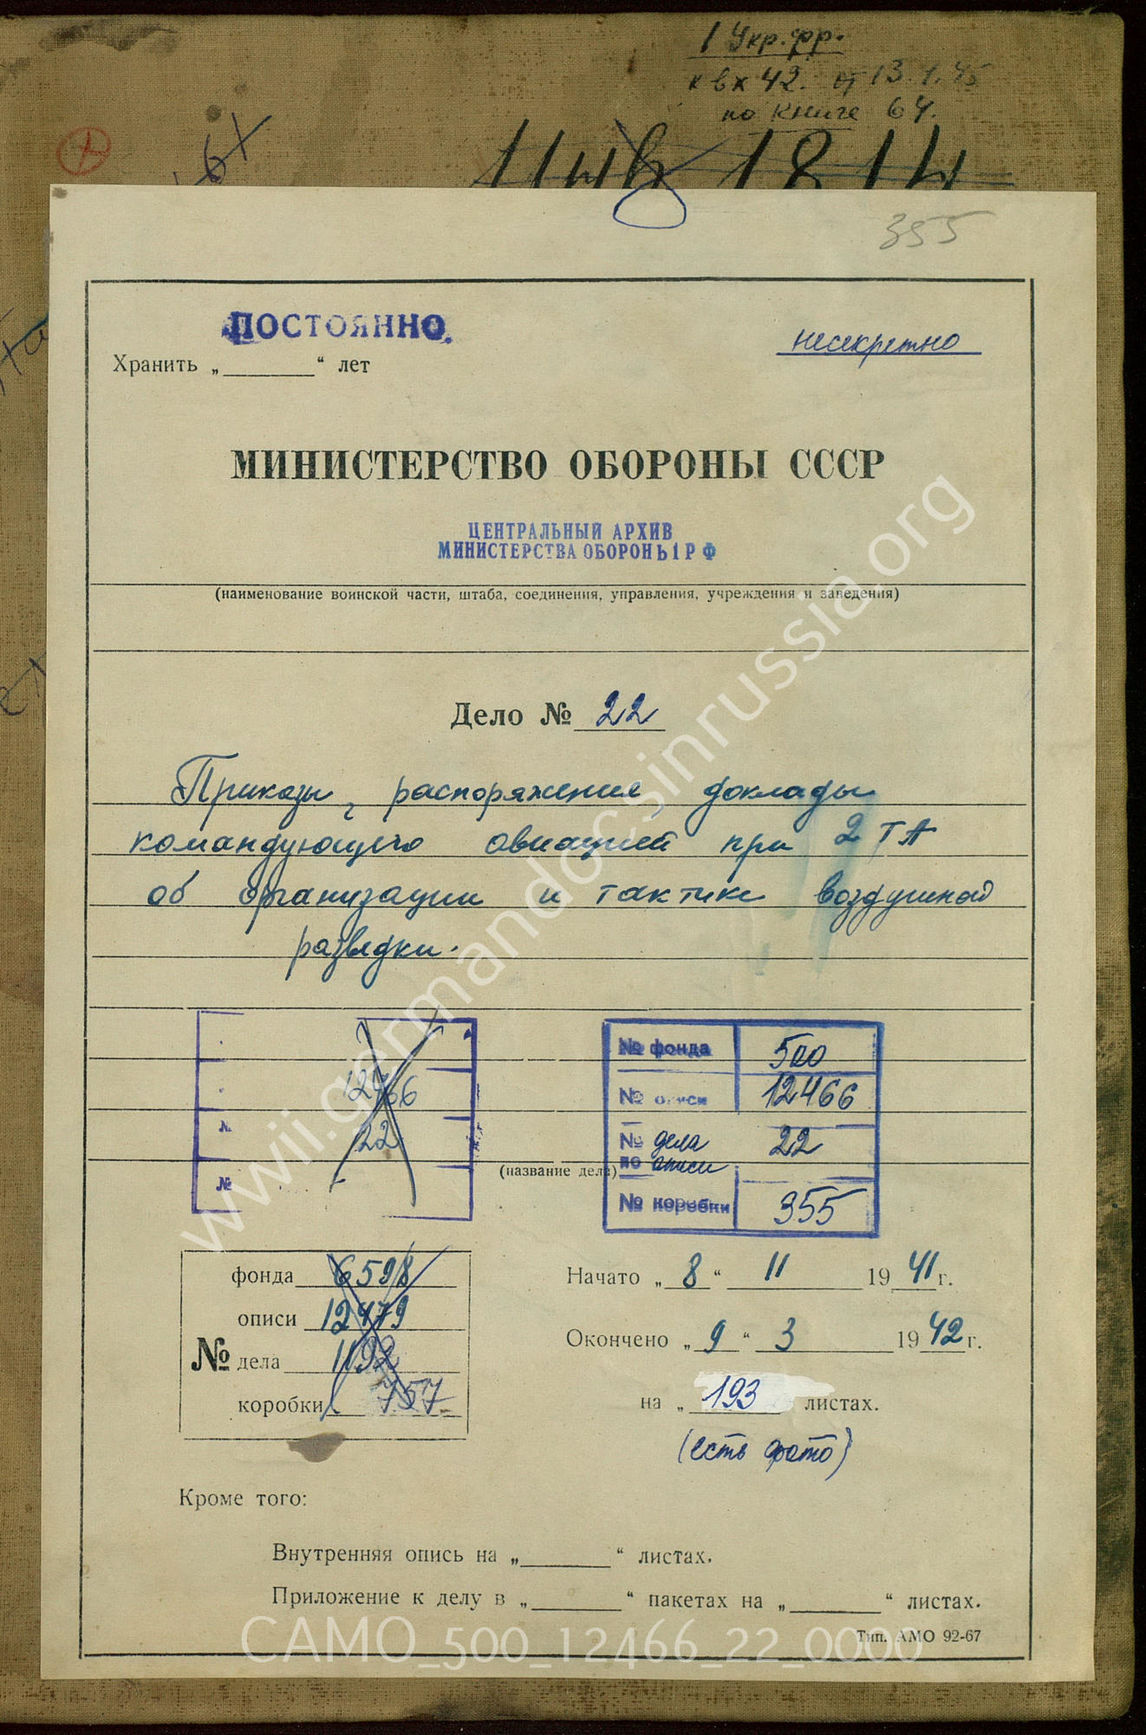 1 Укр. фр.
к вх 42. от 13.1.45
по книге 64.
355
ПОСТОЯННО
несекретно
Хранить „ “ лет
МИНИСТЕРСТВО ОБОРОНЫ СССР
ЦЕНТРАЛЬНЫЙ АРХИВ
МИНИСТЕРСТВА ОБОРОНЫ РФ
(наименование воинской части, штаба, соединения, управления, учреждения и заведения)
Дело № 22
Приказы, распоряжения, доклады
командующего авиацией при 2 ТА
об организации и тактике воздушной
разведки.
12466
22
№
№
№ фонда 500
№ описи 12466
№ дела по описи 22
№ коробки 355
(название дела)
№
фонда 6598
описи 12479
дела 1192
коробки 757
Начато „8“ 11 1941 г.
Окончено „9“ 3 1942 г.
на „193 листах.
(есть фото)
Кроме того:
Внутренняя опись на „ “ листах.
Приложение к делу в „ “ пакетах на „ “ листах.
Тип. АМО 92-67
wwii.germandocsinrussia.org
CAMO_500_12466_22_0000